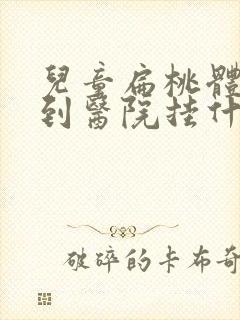 兒童扁桃體
到醫院挂什
破碎的卡布奇